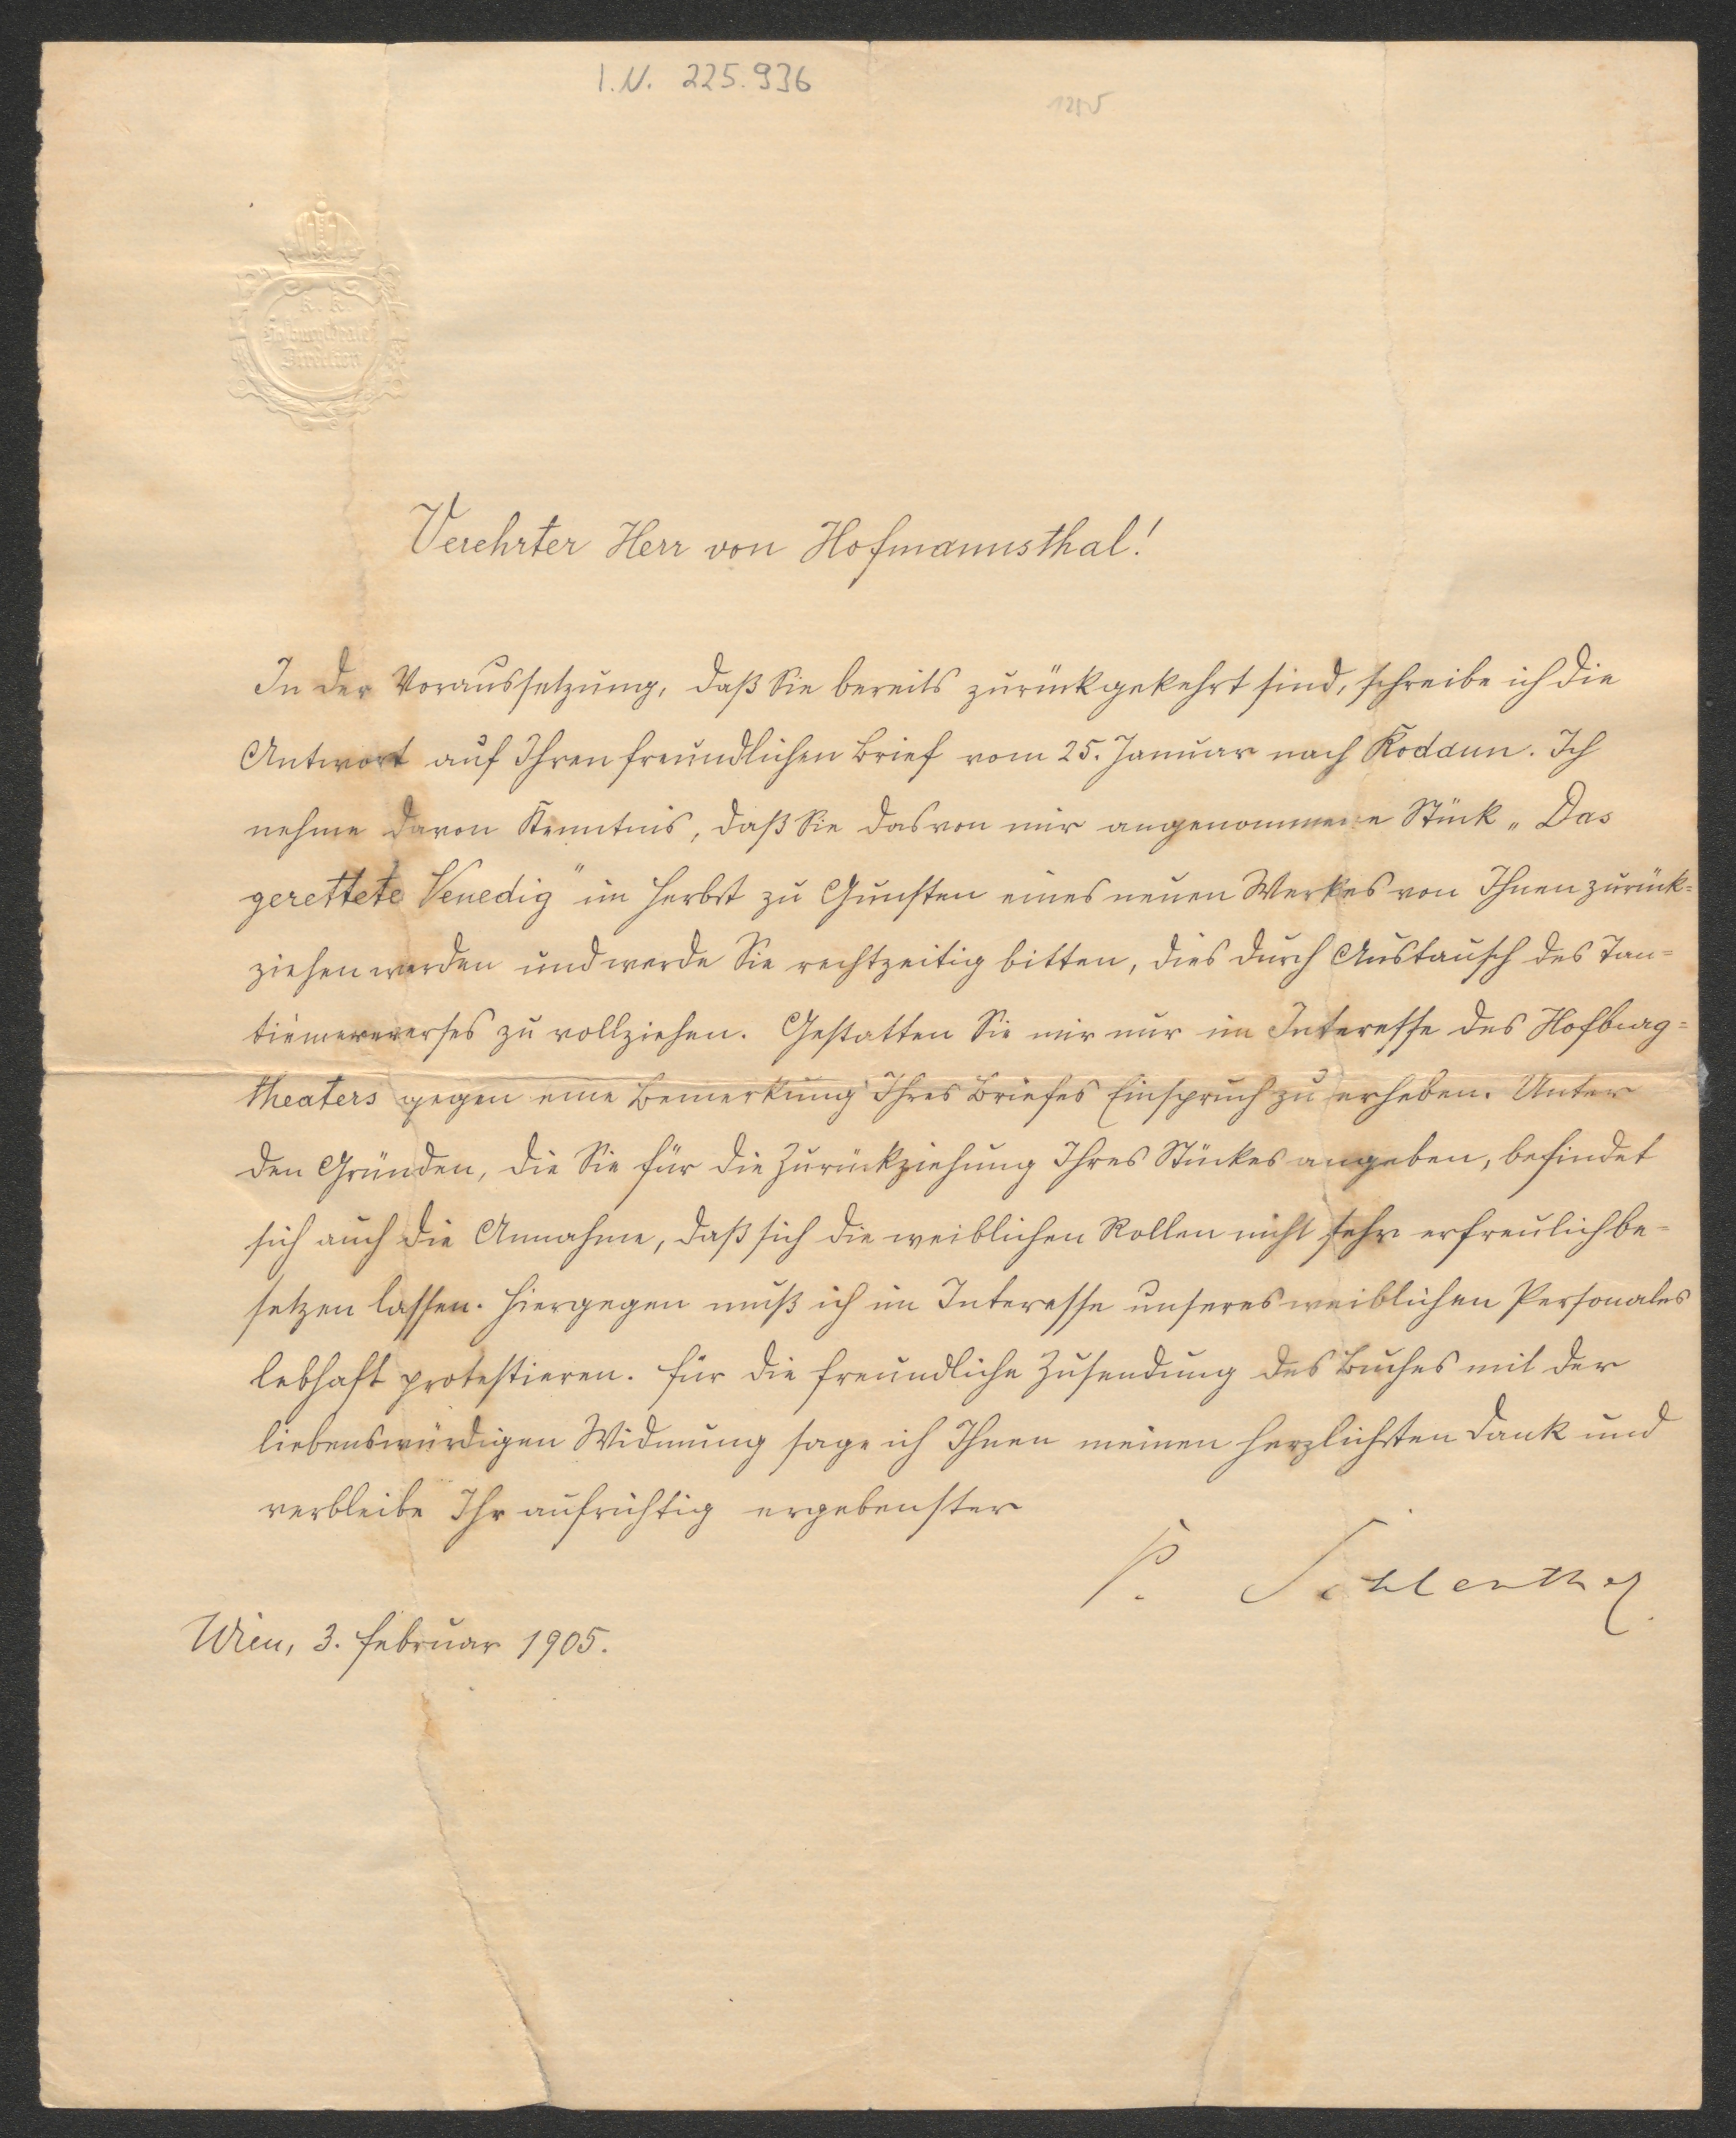 I.N. 225.936
K. K.
Hofburgtheater
Direction
Verehrter Herr von Hofmannsthal!
In der Voraussetzung, daß Sie bereits zurückgekehrt sind, schreibe ich die
Antwort auf Ihren freundlichen Brief vom 25. Januar nach Rodaun. Ich
nehme davon Kenntnis, daß Sie das von mir angenommene Stück „Das
gerettete Venedig" im Herbst zu Gunsten eines neuen Werkes von Ihnen zurück=
ziehen werden und werde Sie rechtzeitig bitten, dies durch Austausch des Tan=
tièmerevverses zu vollziehen. Gestatten Sie mir nur im Interesse des Hofburg=
theaters gegen eine Bemerkung Ihres Briefes Einspruch zu erheben. Unter
den Gründen, die Sie für die Zurückziehung Ihres Stückes angeben, befindet
sich auch die Annahme, daß sich die weiblichen Rollen nicht sehr erfreulich be=
setzen lassen. Hiergegen muß ich im Interesse unseres weiblichen Personales
lebhaft protestieren. Für die freundliche Zusendung des Buches mit der
liebenswürdigen Widmung sage ich Ihnen meinen herzlichsten Dank und
verbleibe Ihr aufrichtig ergebenster
P. Schlenther.
Wien, 3. Februar 1905.